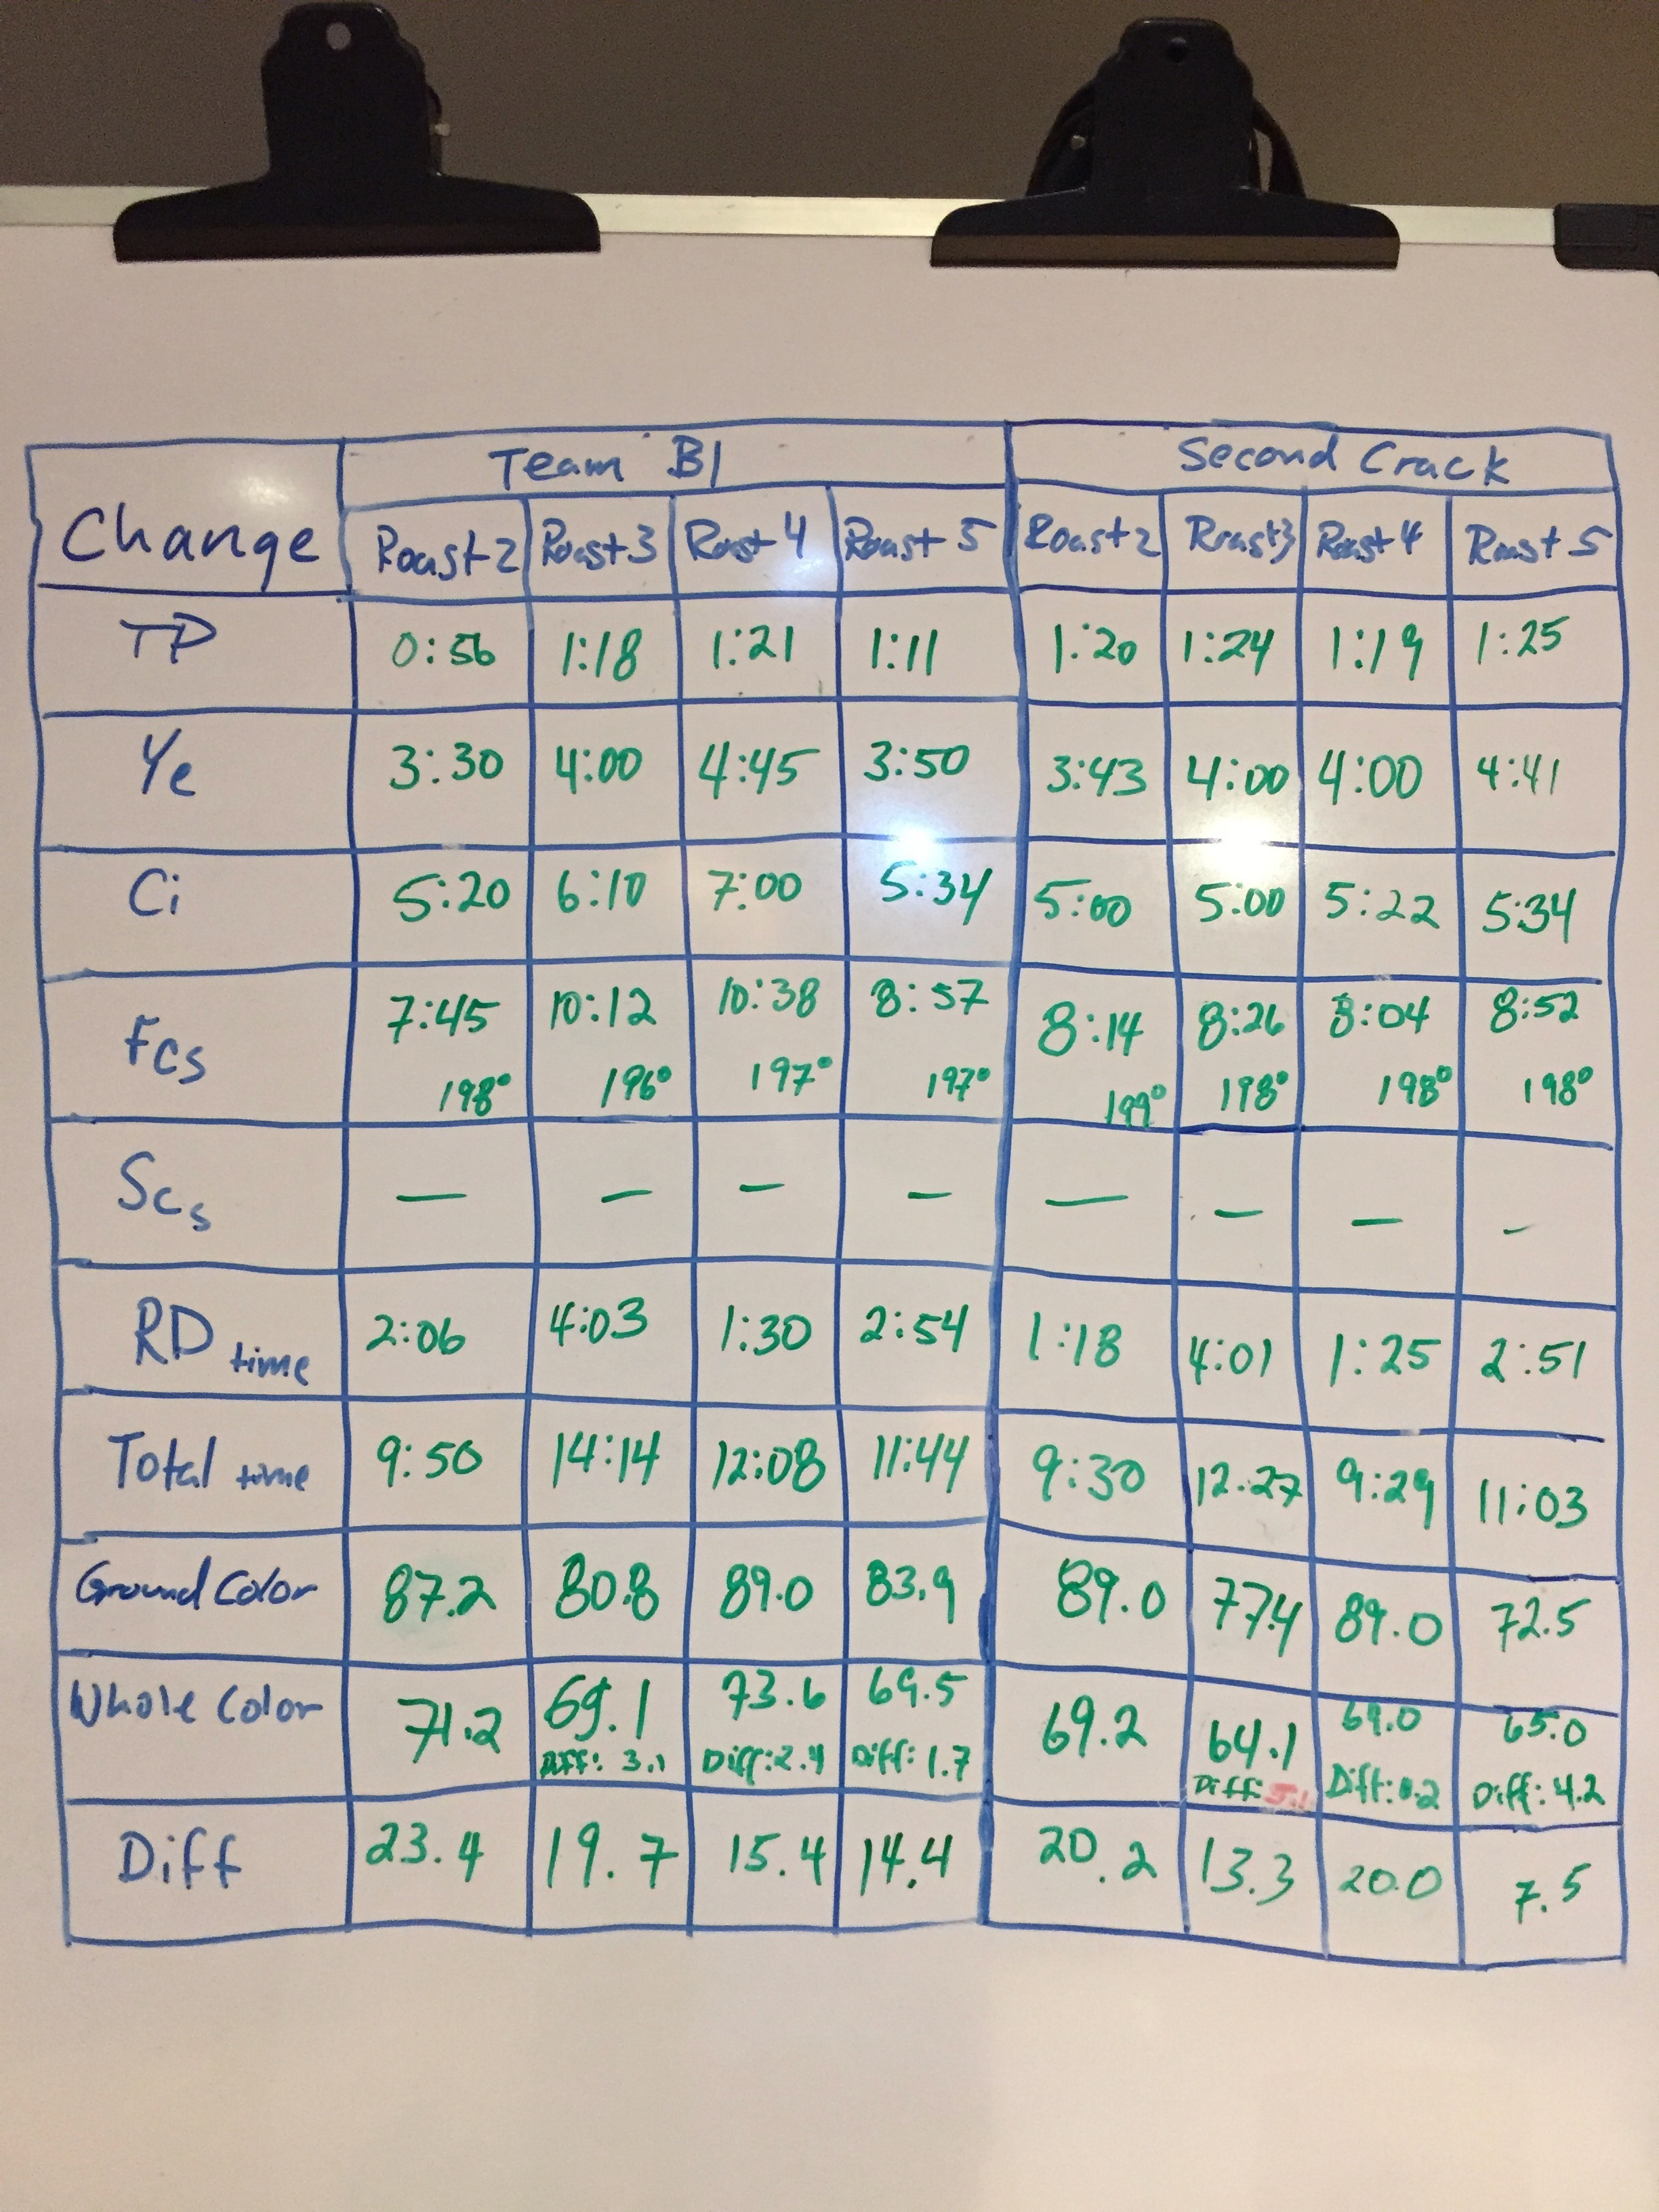 Team B1 Second Crack
Change Roast 2 Roast 3 Roast 4 Roast 5 Roast 2 Roast 3 Roast 4 Roast 5
TP 0:56 1:18 1:21 1:11 1:20 1:24 1:19 1:25
Ye 3:30 4:00 4:45 3:50 3:43 4:00 4:00 4:41
Ci 5:20 6:10 7:00 5:34 5:00 5:00 5:22 5:34
Fcs 7:45 10:12 10:38 8:57 8:14 8:26 8:04 8:52
198° 196° 197° 197° 199° 198° 198° 198°
Scs — — — — — — — -
RD time 2:06 4:03 1:30 2:54 1:18 4:01 1:25 2:51
Total time 9:50 14:14 12:08 11:44 9:30 12.27 9:29 11:03
Ground Color 87.2 80.8 89.0 83.9 89.0 77.4 89.0 72.5
Whole Color 71.2 69.1 73.6 69.5 69.2 64.1 69.0 65.0
Diff: 3.1 Diff: 2.4 Diff: 1.7 Diff: 5.1 Diff: 0.2 Diff: 4.2
Diff 23.4 19.7 15.4 14.4 20.2 13.3 20.0 7.5